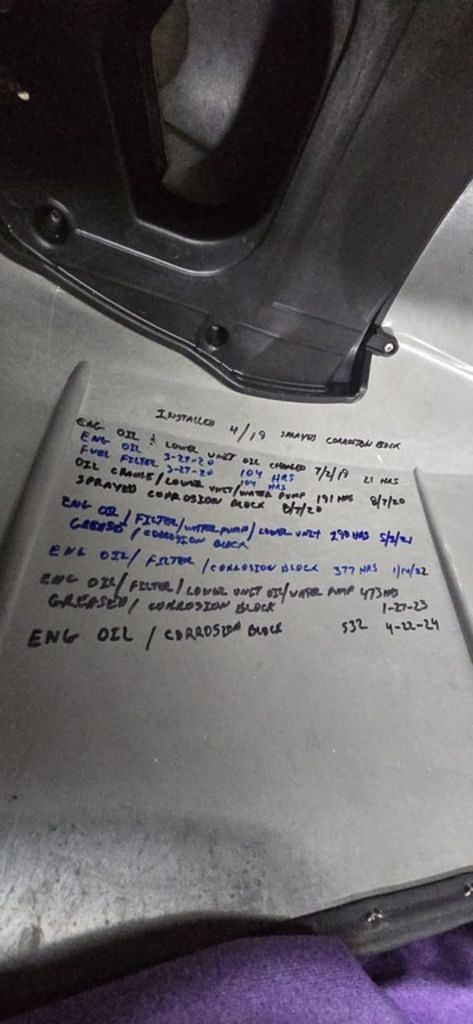 INSTALLED 4/19 SPRAYED CORROSION BLOCK
ENG OIL & LOWER UNIT OIL CHANGED 7/2/19 21 HRS
ENG OIL 3-27-20 104 HRS
FUEL FILTER 3-27-20 104 HRS
OIL CHANGE/LOWER UNIT/WATER PUMP 191 HRS 8/7/20
SPRAYED CORROSION BLOCK 8/7/20
ENG OIL/FILTER/WATER PUMP/LOWER UNIT 290 HRS 5/2/21
GREASED/CORROSION BLOCK
ENG OIL/FILTER/CORROSION BLOCK 377 HRS 1/14/22
ENG OIL/FILTER/LOWER UNIT OIL/WATER PUMP 473 HRS
GREASED/CORROSION BLOCK 1-27-23
ENG OIL/CORROSION BLOCK 532 4-22-24